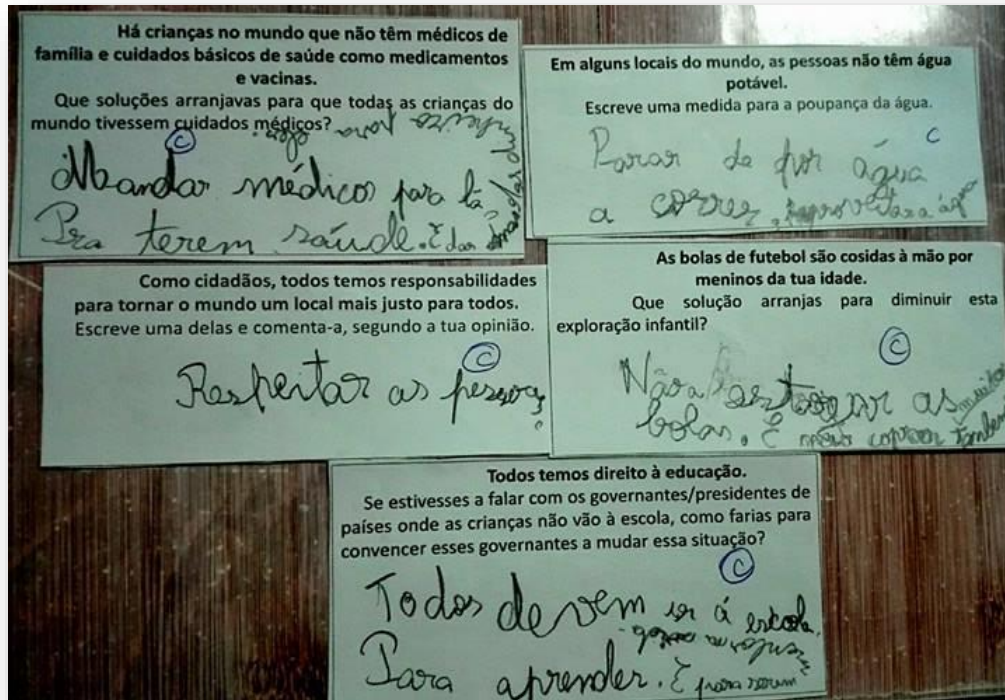 Há crianças no mundo que não têm médicos de
família e cuidados básicos de saúde como medicamentos
e vacinas.
Que soluções arranjavas para que todas as crianças do
mundo tivessem cuidados médicos?
C
Mandar médicos para lá
Pra terem saúde. E dar
dinheiro para eles.
Em alguns locais do mundo, as pessoas não têm água
potável.
Escreve uma medida para a poupança da água.
C
Parar de pôr água
a correr,
Como cidadãos, todos temos responsabilidades
para tornar o mundo um local mais justo para todos.
Escreve uma delas e comenta-a, segundo a tua opinião.
C
Respeitar as pessoas.
As bolas de futebol são cosidas à mão por
meninos da tua idade.
Que solução arranjas para diminuir esta
exploração infantil?
C
Não estragar as
bolas. E também
Todos temos direito à educação.
Se estivesses a falar com os governantes/presidentes de
países onde as crianças não vão à escola, como farias para
convencer esses governantes a mudar essa situação?
C
Todos devem ir á escola.
Para aprender. E para serem